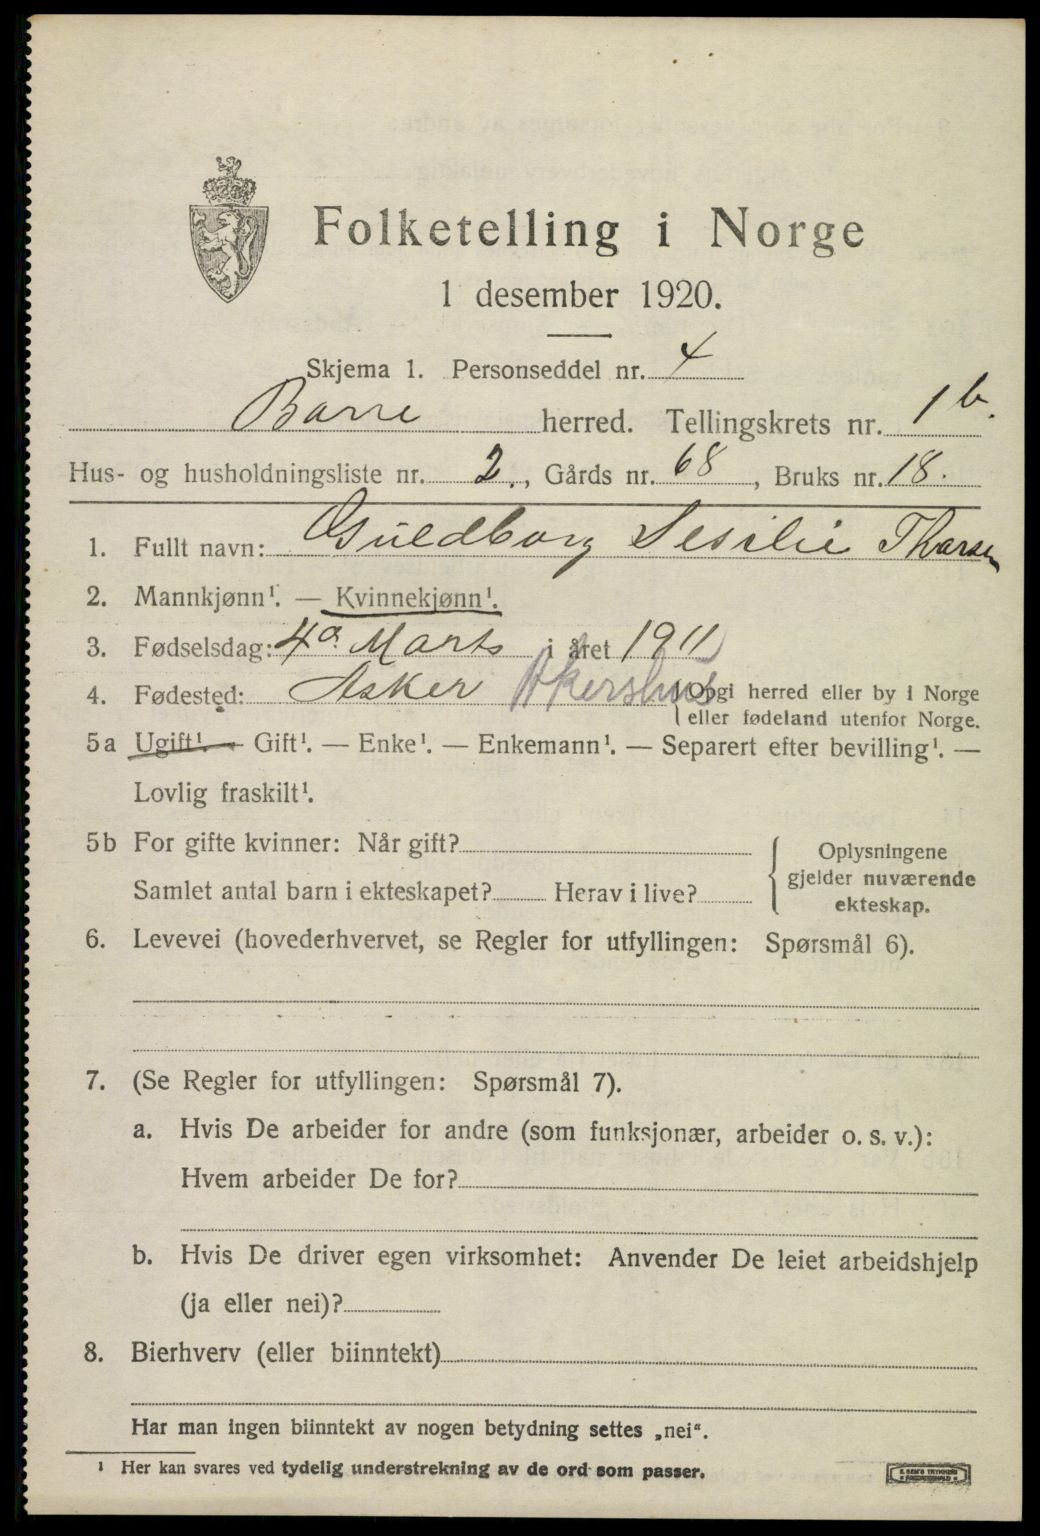 Folketelling i Norge
1 desember 1920.
Skjema 1. Personseddel nr. 4
Borre herred. Tellingskrets nr. 1 b.
Hus- og husholdningsliste nr. 2., Gårds nr. 68, Bruks nr. 18.
1. Fullt navn: Guldborg Sesilie Thorsen
2. Mannkjønn¹. — Kvinnekjønn¹.
3. Fødselsdag: 4de Marts i året 1911
4. Fødested: Asker Akershus (Opgi herred eller by i Norge
eller fødeland utenfor Norge.
5a Ugift¹. — Gift¹. — Enke¹. — Enkemann¹. — Separert efter bevilling¹. —
Lovlig fraskilt¹.
5b For gifte kvinner: Når gift?
Samlet antal barn i ekteskapet? Herav i live?
Oplysningene
gjelder nuværende
ekteskap.
6. Levevei (hovederhvervet, se Regler for utfyllingen: Spørsmål 6).
7. (Se Regler for utfyllingen: Spørsmål 7).
a. Hvis De arbeider for andre (som funksjonær, arbeider o. s. v.):
Hvem arbeider De for?
b. Hvis De driver egen virksomhet: Anvender De leiet arbeidshjelp
(ja eller nei)?
8. Bierhverv (eller biinntekt)
Har man ingen biinntekt av nogen betydning settes „nei“.
¹ Her kan svares ved tydelig understrekning av de ord som passer.